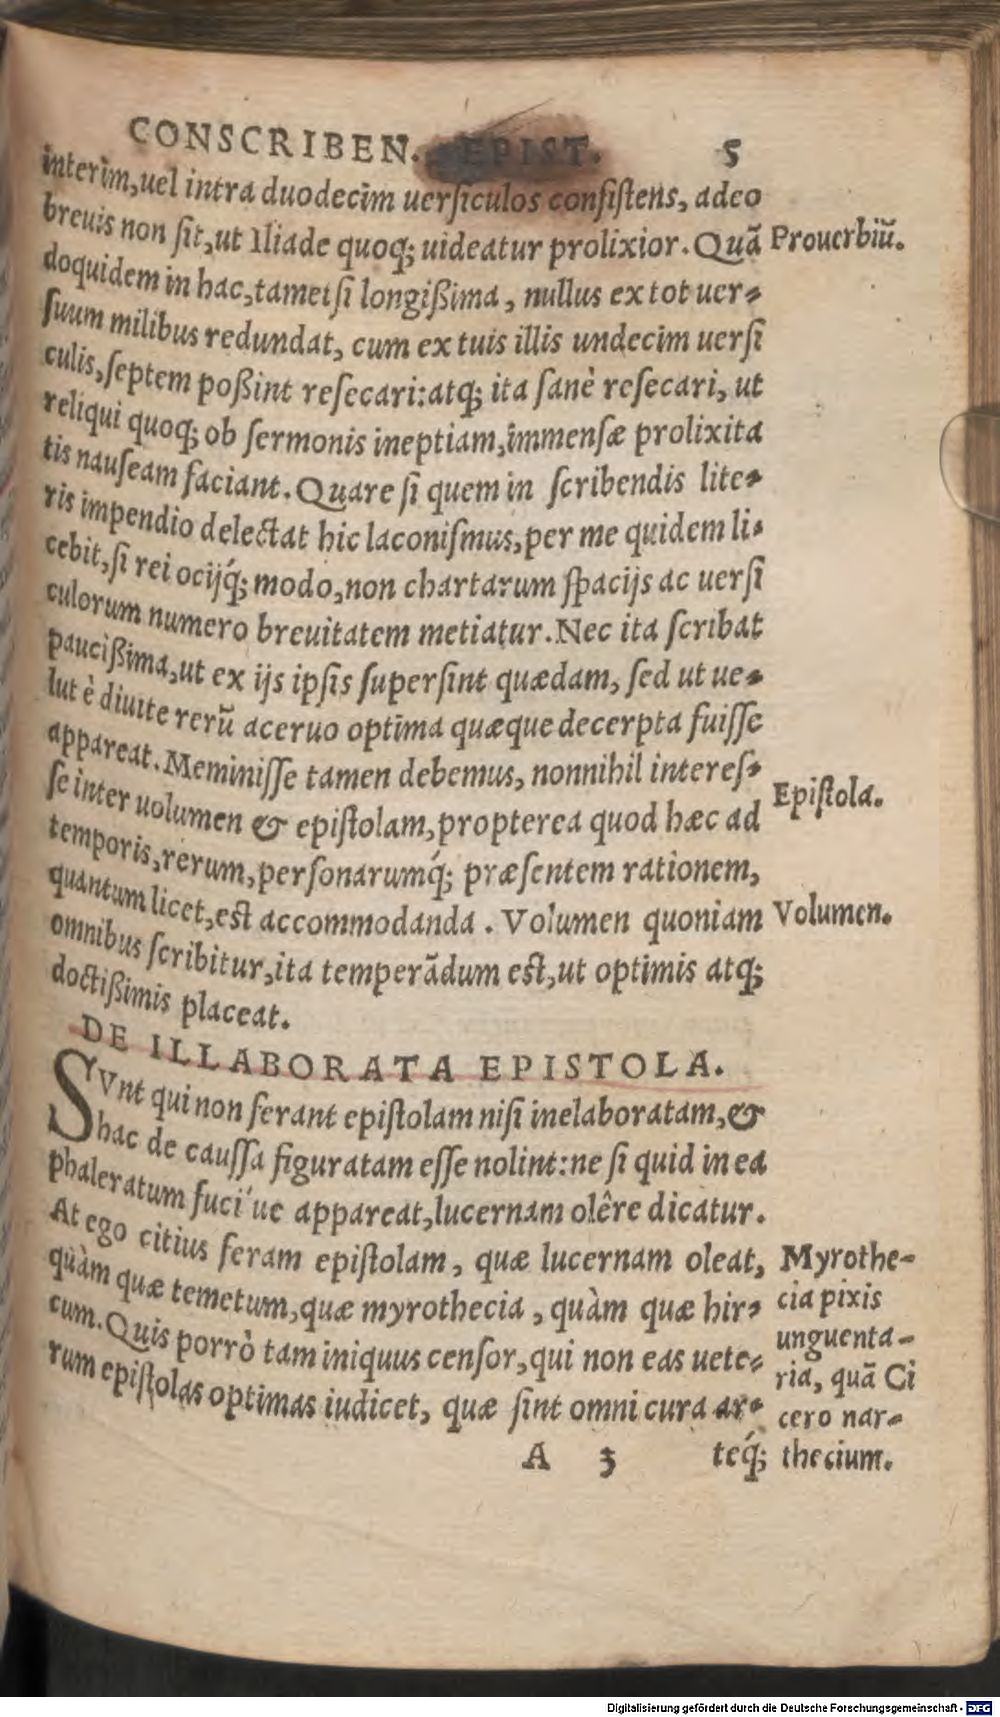 CONSCRIBEN. EPIST. 5
interim, uel intra duodecim uersiculos consistens, adeo
breuis non sit, ut Iliade quoq; uideatur prolixior. Quã
Prouerbiũ.
doquidem in hac, tametsi longißima, nullus ex tot uer-
suum milibus redundat, cum ex tuis illis undecim uersi
culis, septem poßint resecari: atq; ita sanè resecari, ut
reliqui quoq; ob sermonis ineptiam, immensæ prolixita
tis nauseam faciant. Quare si quem in scribendis lite-
ris impendio delectat hic laconismus, per me quidem li-
cebit, si rei ocijq́; modo, non chartarum spacijs ac uersi
culorum numero breuitatem metiatur. Nec ita scribat
paucißima, ut ex ijs ipsis supersint quædam, sed ut ue-
lut è diuite rerũ aceruo optima quæque decerpta fuisse
appareat. Meminisse tamen debemus, nonnihil interes-
se inter uolumen & epistolam, propterea quod hæc ad
Epistola.
temporis, rerum, personarumq́; præsentem rationem,
quantum licet, est accommodanda. Volumen quoniam
Volumen.
omnibus scribitur, ita temperãdum est, ut optimis atq;
doctißimis placeat.
DE ILLABORATA EPISTOLA.
SVnt qui non ferant epistolam nisi inelaboratam, &
hac de caussa figuratam esse nolint: ne si quid in ea
phaleratum fuci'ue appareat, lucernam olêre dicatur.
At ego citius feram epistolam, quæ lucernam oleat,
quàm quæ temetum, quæ myrothecia, quàm quæ hir-
cum. Quis porrò tam iniquus censor, qui non eas uete-
rum epistolas optimas iudicet, quæ sint omni cura ar-
Myrothe-
cia pixis
unguenta-
ria, quã Ci
cero nar-
thecium.
A 3 teq́;
Digitalisierung gefördert durch die Deutsche Forschungsgemeinschaft - DFG